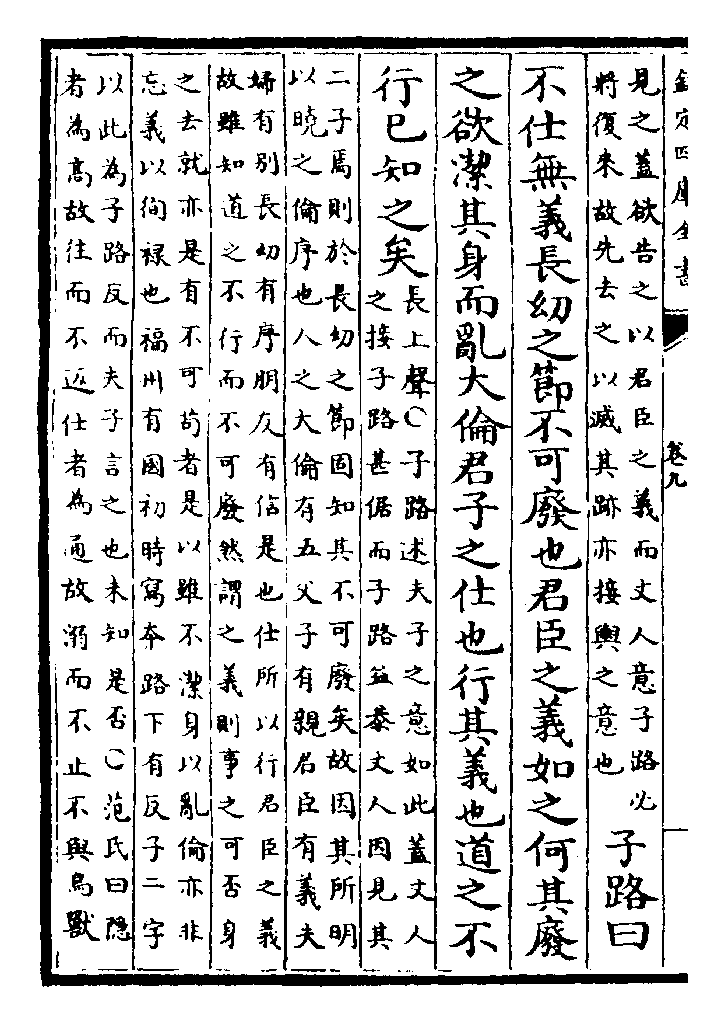 欽定四庫全書
卷九
見之蓋欲告之以君臣之義而丈人意子路必
將復來故先去之以滅其跡亦接輿之意也
子路曰
不仕無義長幼之節不可廢也君臣之義如之何其廢
之欲潔其身而亂大倫君子之仕也行其義也道之不
行已知之矣
長上聲○子路述夫子之意如此蓋丈人
之接子路甚倨而子路益恭丈人因見其
二子焉則於長幼之節固知其不可廢矣故因其所明
以曉之倫序也人之大倫有五父子有親君臣有義夫
婦有別長幼有序朋友有信是也仕所以行君臣之義
故雖知道之不行而不可廢然謂之義則事之可否身
之去就亦是有不可茍者是以雖不潔身以亂倫亦非
忘義以徇祿也福州有國初時寫本路下有反子二字
以此為子路反而夫子言之也未知是否○范氏曰隱
者為高故往而不返仕者為通故溺而不止不與鳥獸